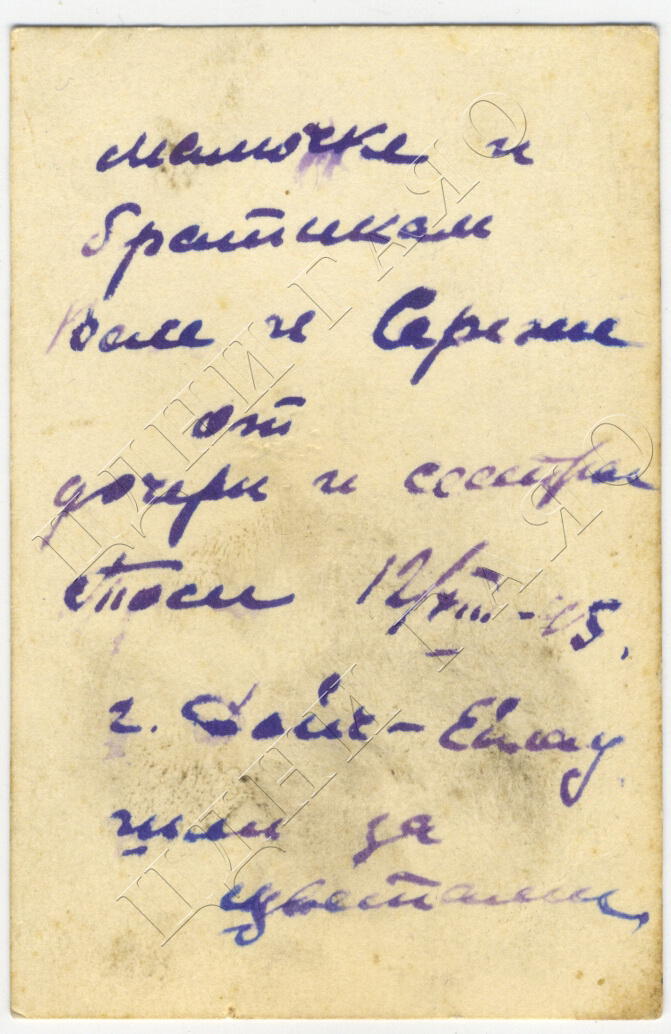 мамочке и
братикам
Юле и Сереже
от
дочери и сестры
Таси 12/VIII-45.
г.
шли за
цветами.
ЦДНИ ГАЯО
ЦДНИ ГАЯО